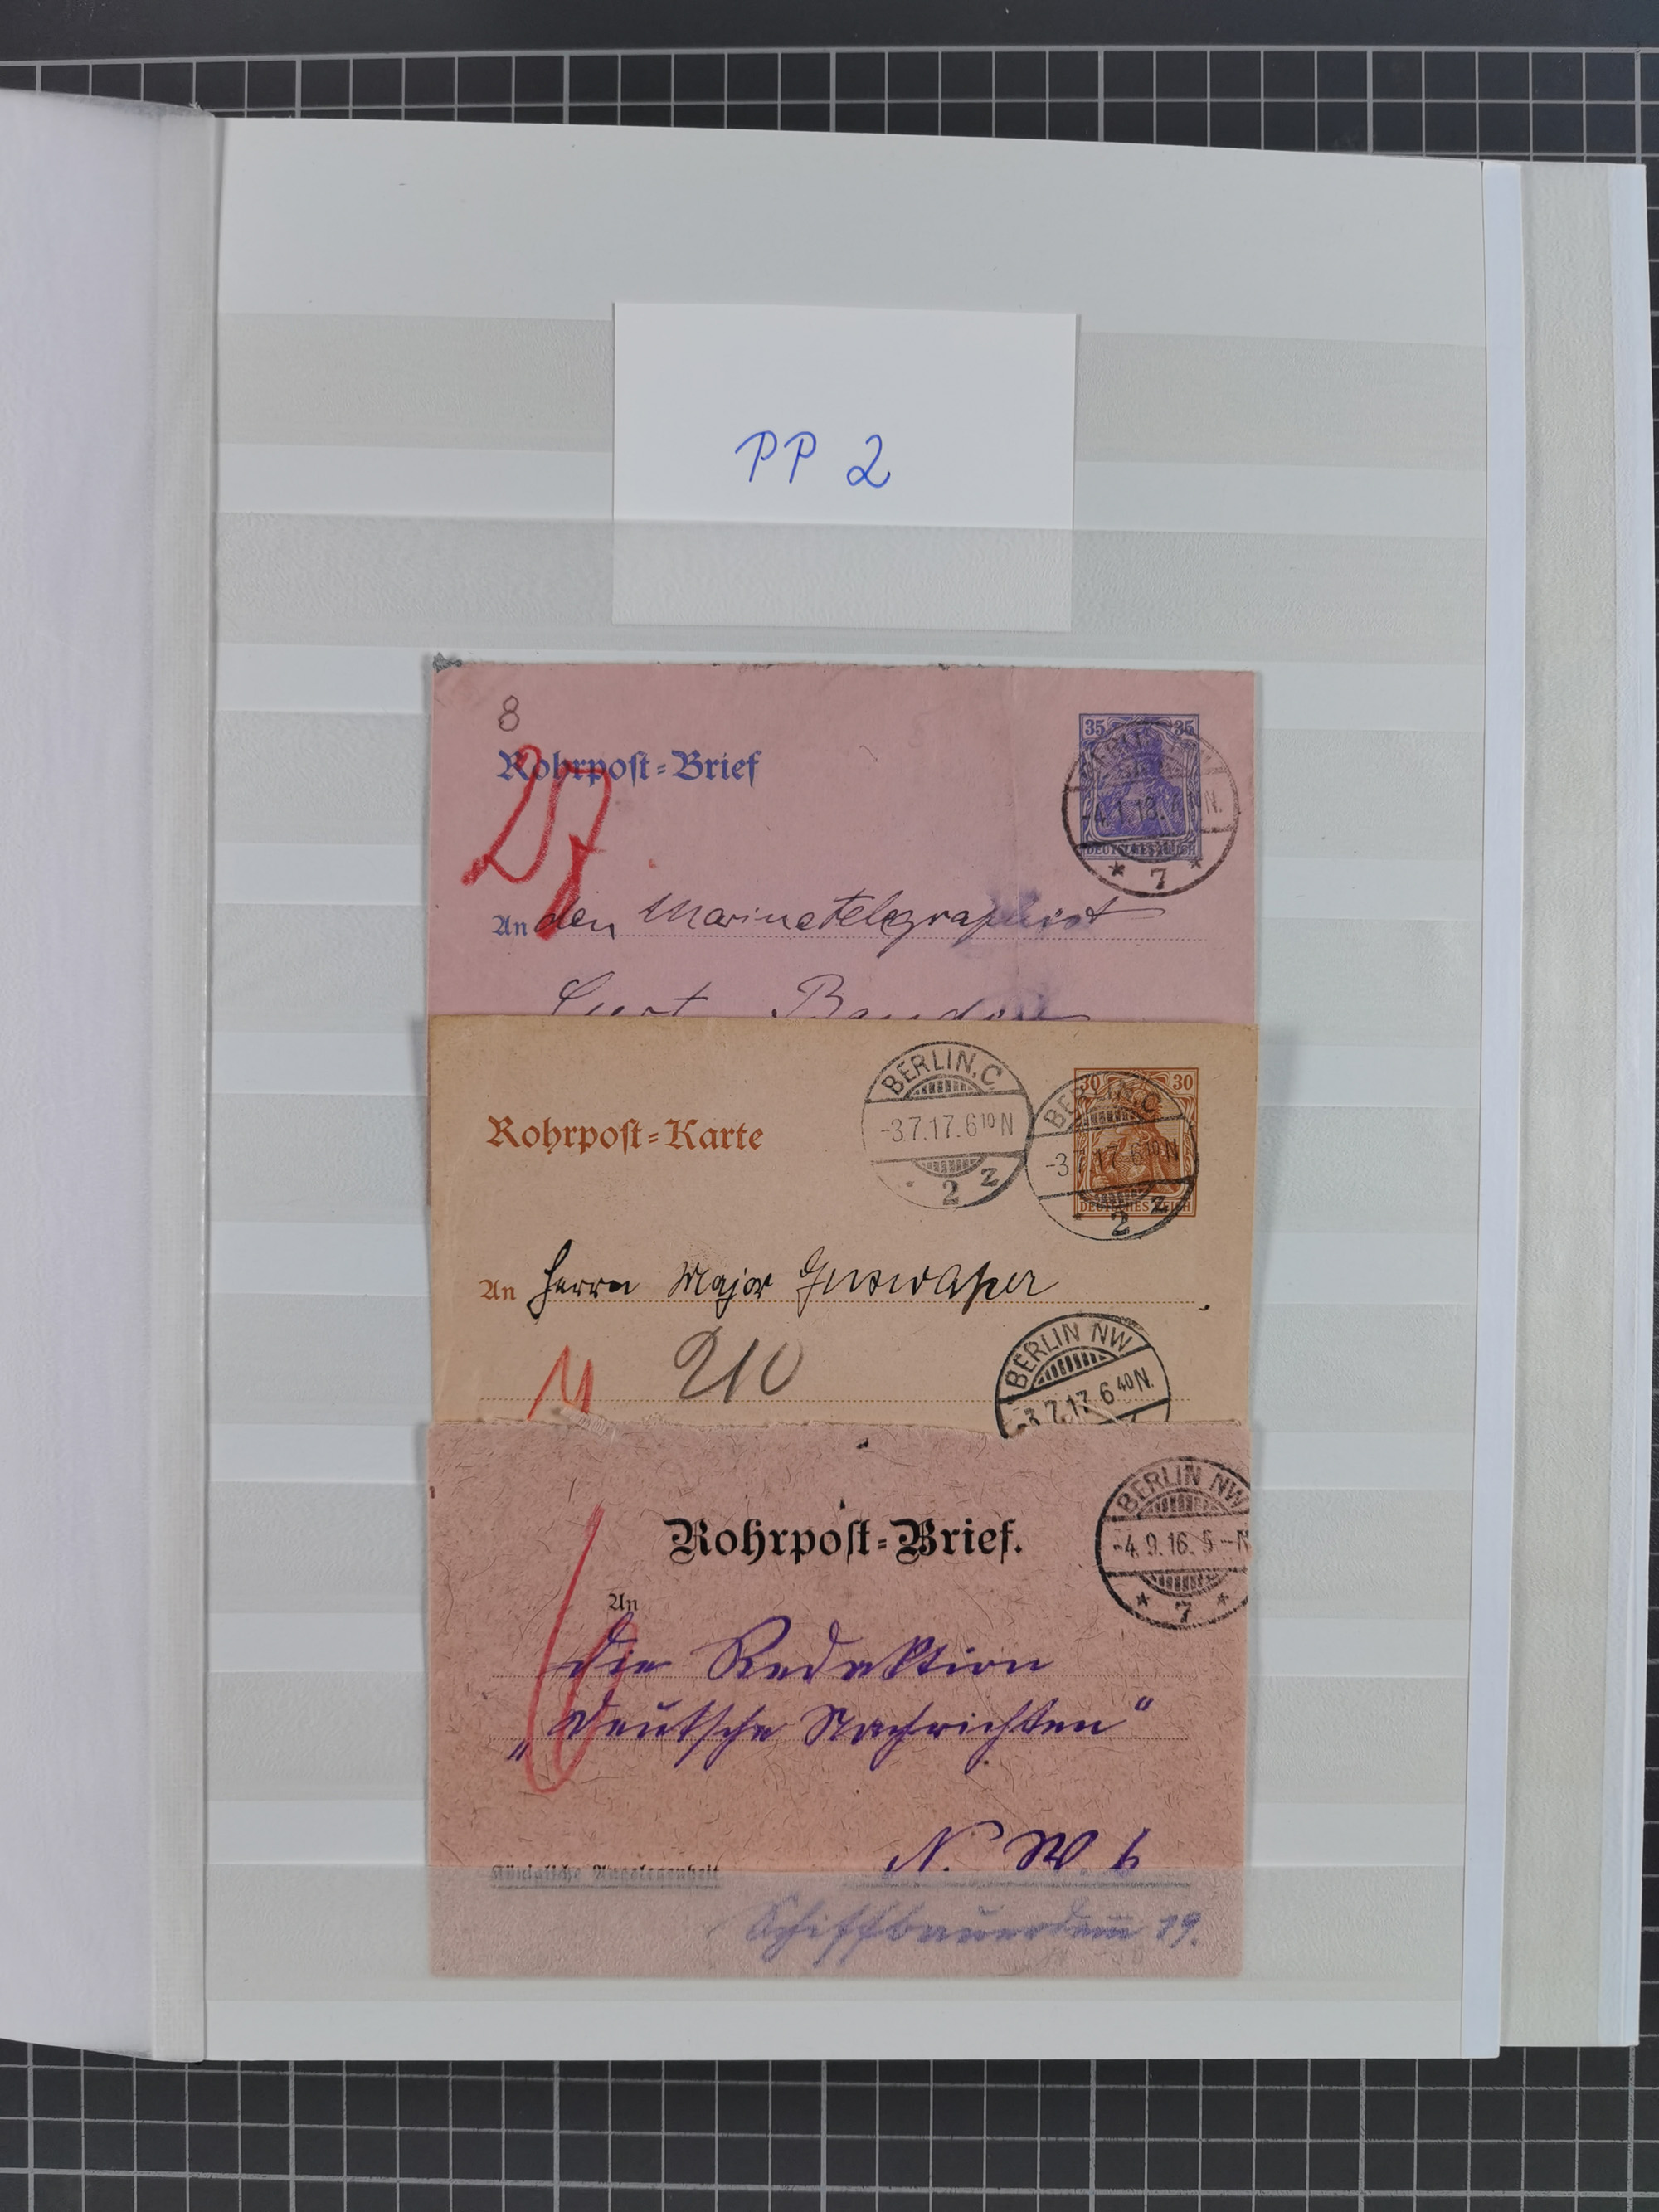 PP 2
8
35 35
Rohrpost-Brief
-4.1.18.
DEUTSCHES REICH
* 7 *
An den Marinetelegraphist
Curt
BERLIN.C.
-3.7.17.6¹⁰N
2 z
30 30
BERLIN.C.
-3.7.17.6¹⁰N
DEUTSCHES REICH
2 z
Rohrpost-Karte
An Herrn Major
210
BERLIN NW
-3.7.17.6⁴⁰N.
BERLIN NW
-4.9.16.5-N
* 7 *
Rohrpost-Brief.
An
die Redaktion
„Deutsche Nachrichten“
N. W. 6
Königliche Angelegenheit
Schiffbauerdamm 19.